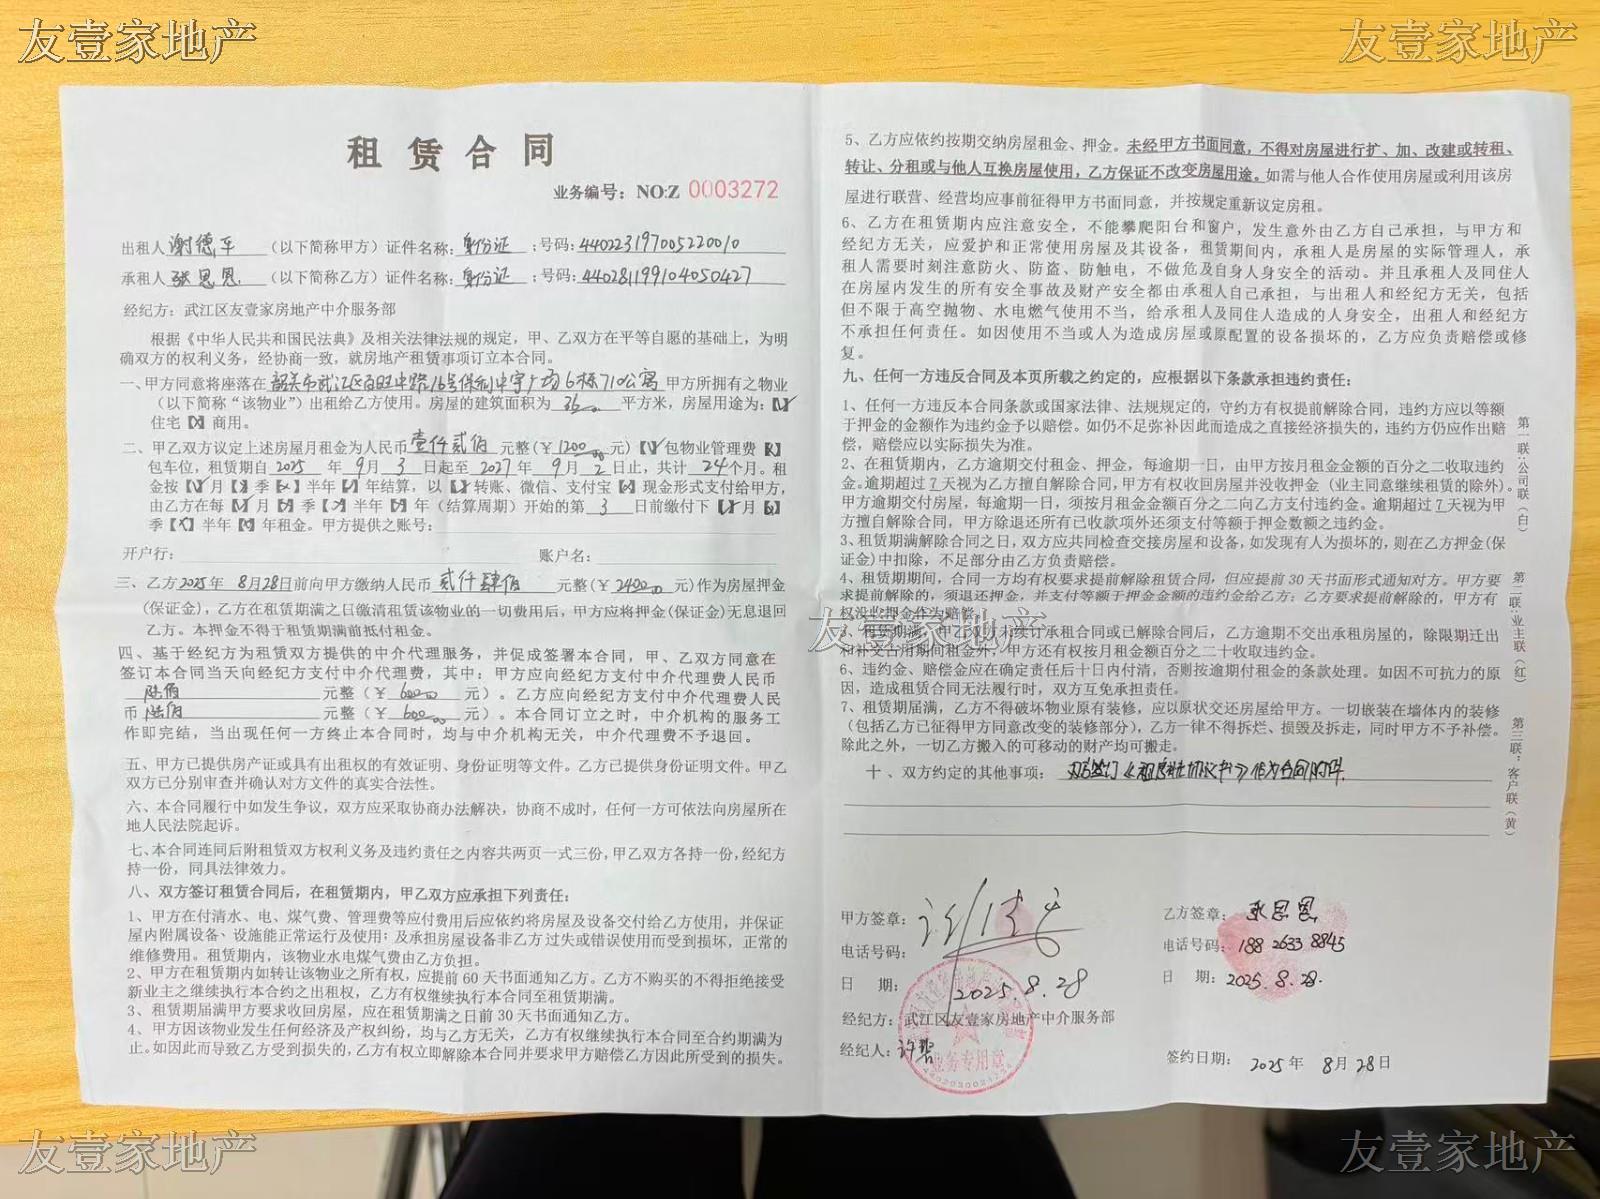 友壹家地产
友壹家地产
租赁合同
业务编号：NO:Z 0003272
出租人谢德平（以下简称甲方）证件名称：身份证；号码：440223197005220010
承租人张思恩（以下简称乙方）证件名称：身份证；号码：440281199104050427
经纪方：武江区友壹家房地产中介服务部
根据《中华人民共和国民法典》及相关法律法规的规定，甲、乙双方在平等自愿的基础上，为明
确双方的权利义务，经协商一致，就房地产租赁事项订立本合同。
一、甲方同意将座落在韶关市武江区百旺中路16号保利中宇广场6栋710公寓甲方所拥有之物业
（以下简称“该物业”）出租给乙方使用。房屋的建筑面积为36平方米，房屋用途为：【√】
住宅【×】商用。
二、甲乙双方议定上述房屋月租金为人民币壹仟贰佰元整(￥1200.00元)【√】包物业管理费【×】
包车位，租赁期自2025年9月3日起至2027年9月2日止，共计24个月。租
金按【√】月【×】季【×】半年【×】年结算，以【√】转账、微信、支付宝【×】现金形式支付给甲方，
由乙方在每【√】月【×】季【×】半年【×】年（结算周期）开始的第3日前缴付下【√】月【×】
季【×】半年【×】年租金。甲方提供之账号：
开户行： 账户名：
三、乙方2025年8月28日前向甲方缴纳人民币贰仟肆佰元整(￥2400.00元)作为房屋押金
(保证金)，乙方在租赁期满之日缴清租赁该物业的一切费用后，甲方应将押金(保证金)无息退回
乙方。本押金不得于租赁期满前抵付租金。
四、基于经纪方为租赁双方提供的中介代理服务，并促成签署本合同，甲、乙双方同意在
签订本合同当天向经纪方支付中介代理费，其中：甲方应向经纪方支付中介代理费人民币
陆佰元整（￥600.00元）。乙方应向经纪方支付中介代理费人民
币陆佰元整（￥600.00元）。本合同订立之时，中介机构的服务工
作即完结，当出现任何一方终止本合同时，均与中介机构无关，中介代理费不予退回。
五、甲方已提供房产证或具有出租权的有效证明、身份证明等文件。乙方已提供身份证明文件。甲乙
双方已分别审查并确认对方文件的真实合法性。
六、本合同履行中如发生争议，双方应采取协商办法解决，协商不成时，任何一方可依法向房屋所在
地人民法院起诉。
七、本合同连同后附租赁双方权利义务及违约责任之内容共两页一式三份，甲乙双方各持一份，经纪方
持一份，同具法律效力。
八、双方签订租赁合同后，在租赁期内，甲乙双方应承担下列责任：
1、甲方在付清水、电、煤气费、管理费等应付费用后应依约将房屋及设备交付给乙方使用，并保证
屋内附属设备、设施能正常运行及使用；及承担房屋设备非乙方过失或错误使用而受到损坏，正常的
维修费用。租赁期内，该物业水电煤气费由乙方负担。
2、甲方在租赁期内如转让该物业之所有权，应提前60天书面通知乙方。乙方不购买的不得拒绝接受
新业主之继续执行本合约之出租权，乙方有权继续执行本合同至租赁期满。
3、租赁期届满甲方要求收回房屋，应在租赁期满之日前30天书面通知乙方。
4、甲方因该物业发生任何经济及产权纠纷，均与乙方无关，乙方有权继续执行本合同至合约期满为
止。如因此而导致乙方受到损失的，乙方有权立即解除本合同并要求甲方赔偿乙方因此所受到的损失。
5、乙方应依约按期交纳房屋租金、押金。未经甲方书面同意，不得对房屋进行扩、加、改建或转租、
转让、分租或与他人互换房屋使用，乙方保证不改变房屋用途。如需与他人合作使用房屋或利用该房
屋进行联营、经营均应事前征得甲方书面同意，并按规定重新议定房租。
6、乙方在租赁期内应注意安全，不能攀爬阳台和窗户，发生意外由乙方自己承担，与甲方和
经纪方无关，应爱护和正常使用房屋及其设备，租赁期间内，承租人是房屋的实际管理人，承
租人需要时刻注意防火、防盗、防触电，不做危及自身人身安全的活动。并且承租人及同住人
在房屋内发生的所有安全事故及财产安全都由承租人自己承担，与出租人和经纪方无关，包括
但不限于高空抛物、水电燃气使用不当，给承租人及同住人造成的人身安全，出租人和经纪方
不承担任何责任。如因使用不当或人为造成房屋或原配置的设备损坏的，乙方应负责赔偿或修
复。
九、任何一方违反合同及本页所载之约定的，应根据以下条款承担违约责任：
1、任何一方违反本合同条款或国家法律、法规规定的，守约方有权提前解除合同，违约方应以等额
于押金的金额作为违约金予以赔偿。如仍不足弥补因此而造成之直接经济损失的，违约方仍应作出赔
偿，赔偿应以实际损失为准。
2、在租赁期内，乙方逾期交付租金、押金，每逾期一日，由甲方按月租金金额的百分之二收取违约
金。逾期超过7天视为乙方擅自解除合同，甲方有权收回房屋并没收押金（业主同意继续租赁的除外）。
甲方逾期交付房屋，每逾期一日，须按月租金金额百分之二向乙方支付违约金。逾期超过7天视为甲
方擅自解除合同，甲方除退还所有已收款项外还须支付等额于押金数额之违约金。
3、租赁期满解除合同之日，双方应共同检查交接房屋和设备，如发现有人为损坏的，则在乙方押金(保
证金)中扣除，不足部分由乙方负责赔偿。
4、租赁期期间，合同一方均有权要求提前解除租赁合同，但应提前30天书面形式通知对方。甲方要
求提前解除的，须退还押金，并支付等额于押金金额的违约金给乙方；乙方要求提前解除的，甲方有
权没收押金作为赔偿。
5、租赁期满，甲乙双方未续订承租合同或已解除合同后，乙方逾期不交出承租房屋的，除限期迁出
和补交占用期间租金外，甲方还有权按月租金额百分之二十收取违约金。
友壹家地产
6、违约金、赔偿金应在确定责任后十日内付清，否则按逾期付租金的条款处理。如因不可抗力的原
因，造成租赁合同无法履行时，双方互免承担责任。
7、租赁期届满，乙方不得破坏物业原有装修，应以原状交还房屋给甲方。一切嵌装在墙体内的装修
（包括乙方已征得甲方同意改变的装修部分），乙方一律不得拆烂、损毁及拆走，同时甲方不予补偿。
除此之外，一切乙方搬入的可移动的财产均可搬走。
十、双方约定的其他事项：双方签订《租房补充协议书》作为合同附件.
第一联：公司联（白）
第二联：业主联（红）
第三联：客户联（黄）
甲方签章：
电话号码：
日期：2025.8.28
经纪方：武江区友壹家房地产中介服务部
经纪人：许碧
业务专用章
乙方签章：张思恩
电话号码：188 2633 8845
日期：2025.8.28.
签约日期：2025年8月28日
友壹家地产
友壹家地产